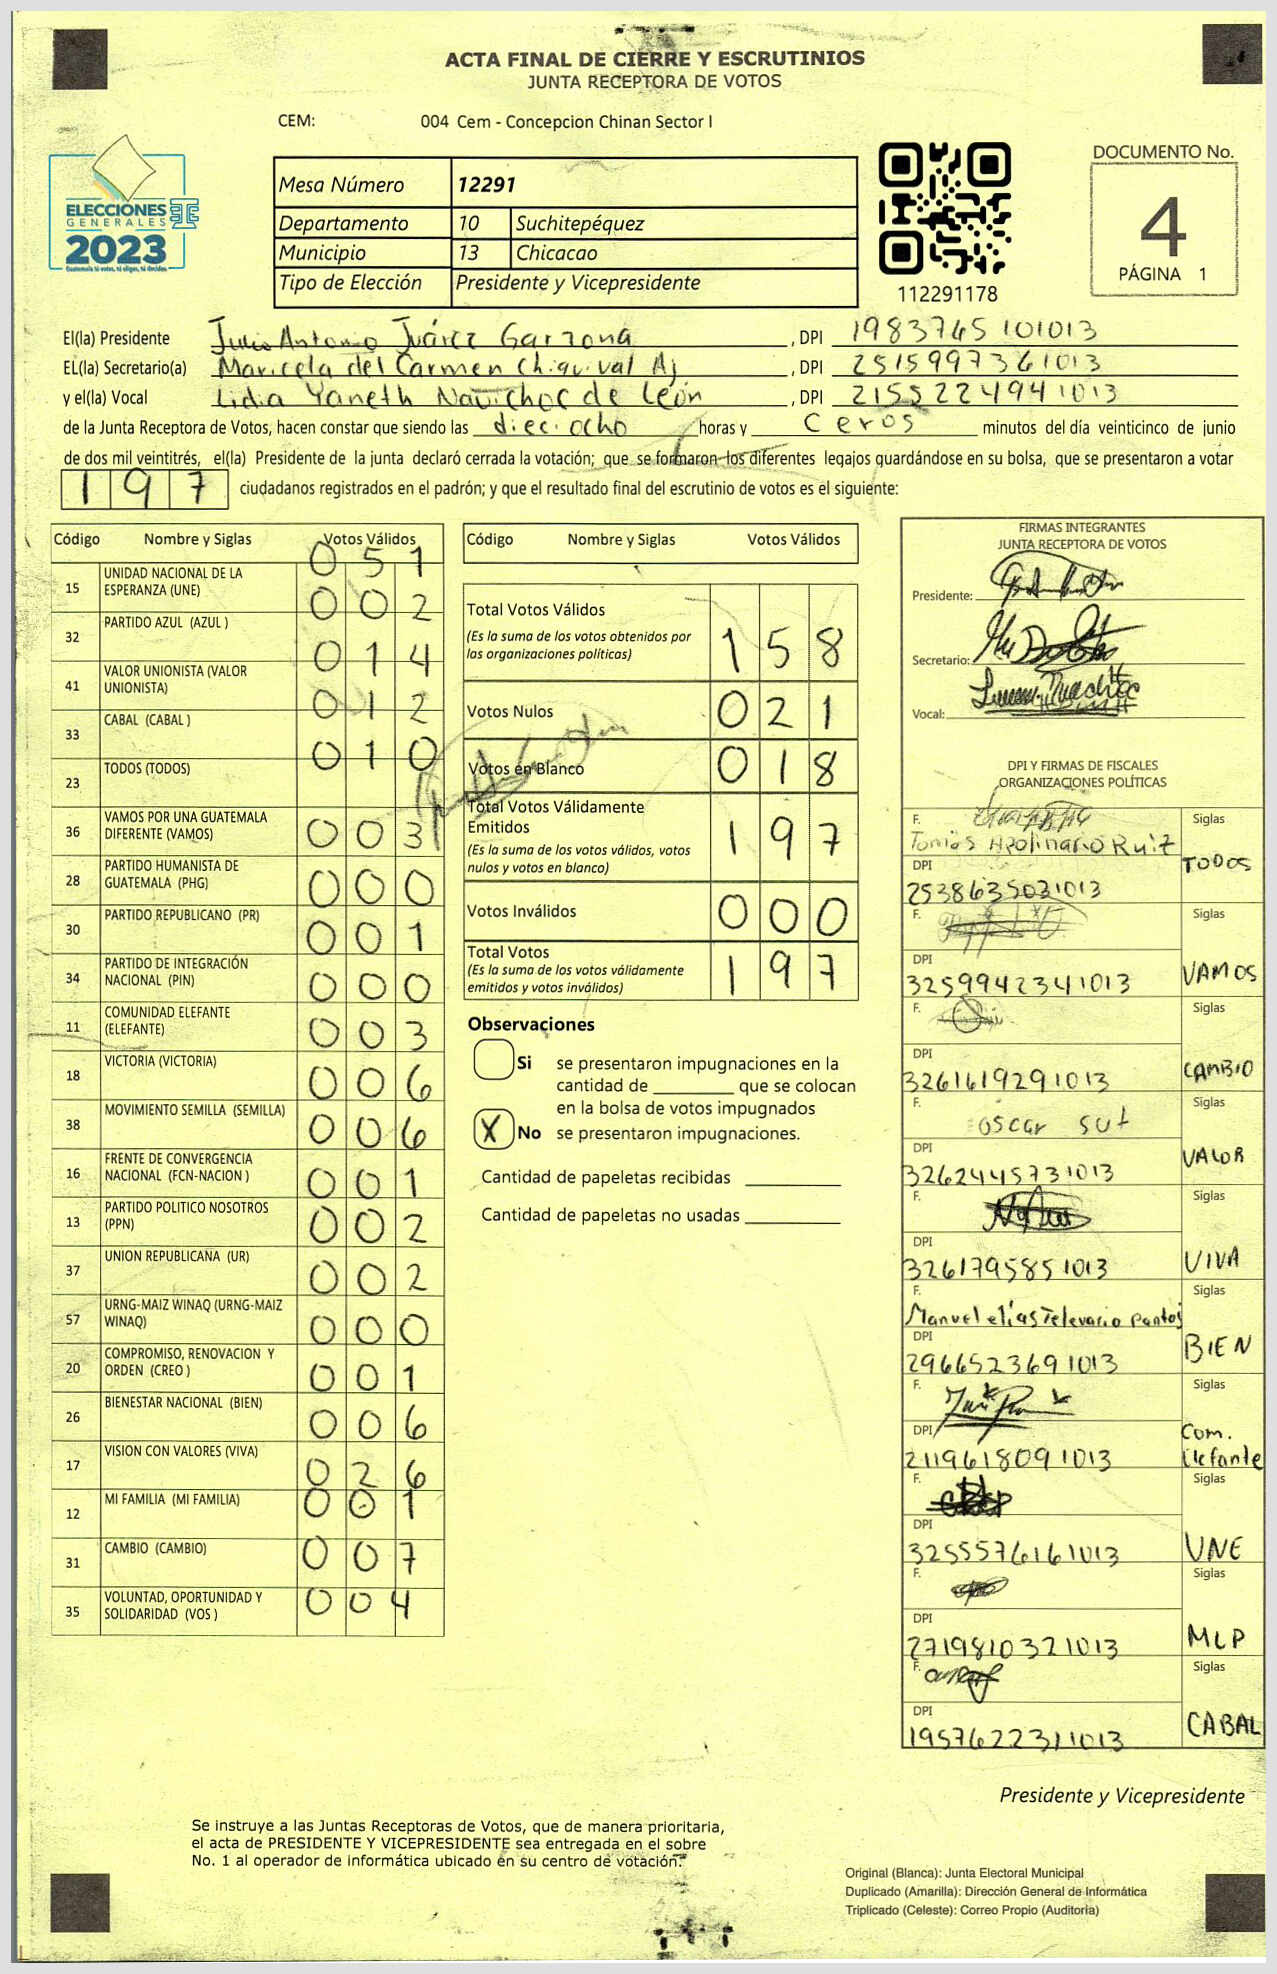 ACTA FINAL DE CIERRE Y ESCRUTINIOS
JUNTA RECEPTORA DE VOTOS
CEM: 004 Cem - Concepcion Chinan Sector I
ELECCIONES
GENERALES
2023
Guatemala tú votas, tú eliges, tú decides
Mesa Número 12291
Departamento 10 Suchitepéquez
Municipio 13 Chicacao
Tipo de Elección Presidente y Vicepresidente
112291178
DOCUMENTO No.
4
PÁGINA 1
El(la) Presidente Julio Antonio Juárez Garzona, DPI 1983745101013
EL(la) Secretario(a) Maricela del Carmen Chiquival Aj, DPI 2515997361013
y el(la) Vocal Lidia Yaneth Navichoc de León, DPI 2155224941013
de la Junta Receptora de Votos, hacen constar que siendo las dieciocho horas y Ceros minutos del día veinticinco de junio
de dos mil veintitrés, el(la) Presidente de la junta declaró cerrada la votación; que se formaron los diferentes legajos guardándose en su bolsa, que se presentaron a votar
197 ciudadanos registrados en el padrón; y que el resultado final del escrutinio de votos es el siguiente:
Código Nombre y Siglas Votos Válidos
15 UNIDAD NACIONAL DE LA ESPERANZA (UNE) 051
32 PARTIDO AZUL (AZUL ) 002
41 VALOR UNIONISTA (VALOR UNIONISTA) 014
33 CABAL (CABAL ) 012
23 TODOS (TODOS) 010
36 VAMOS POR UNA GUATEMALA DIFERENTE (VAMOS) 003
28 PARTIDO HUMANISTA DE GUATEMALA (PHG) 000
30 PARTIDO REPUBLICANO (PR) 001
34 PARTIDO DE INTEGRACIÓN NACIONAL (PIN) 000
11 COMUNIDAD ELEFANTE (ELEFANTE) 003
18 VICTORIA (VICTORIA) 006
38 MOVIMIENTO SEMILLA (SEMILLA) 006
16 FRENTE DE CONVERGENCIA NACIONAL (FCN-NACION ) 001
13 PARTIDO POLITICO NOSOTROS (PPN) 002
37 UNION REPUBLICANA (UR) 002
57 URNG-MAIZ WINAQ (URNG-MAIZ WINAQ) 000
20 COMPROMISO, RENOVACION Y ORDEN (CREO ) 001
26 BIENESTAR NACIONAL (BIEN) 006
17 VISION CON VALORES (VIVA) 026
12 MI FAMILIA (MI FAMILIA) 001
31 CAMBIO (CAMBIO) 007
35 VOLUNTAD, OPORTUNIDAD Y SOLIDARIDAD (VOS ) 004
Código Nombre y Siglas Votos Válidos
Total Votos Válidos 158
(Es la suma de los votos obtenidos por
las organizaciones políticas)
Votos Nulos 021
Votos en Blanco 018
Total Votos Válidamente
Emitidos 197
(Es la suma de los votos válidos, votos
nulos y votos en blanco)
Votos Inválidos 000
Total Votos 197
(Es la suma de los votos válidamente
emitidos y votos inválidos)
Observaciones
Si se presentaron impugnaciones en la
cantidad de ________ que se colocan
en la bolsa de votos impugnados
X No se presentaron impugnaciones.
Cantidad de papeletas recibidas
Cantidad de papeletas no usadas
FIRMAS INTEGRANTES
JUNTA RECEPTORA DE VOTOS
Presidente:
Secretario:
Vocal:
DPI Y FIRMAS DE FISCALES
ORGANIZACIONES POLÍTICAS
F. Siglas
Tomás Apolinario Ruiz
DPI TODOS
2538635031013
F. Siglas
DPI VAMOS
3259942341013
F. Siglas
DPI CAMBIO
3261619291013
F. oscar sut Siglas
DPI VALOR
3262445731013
F. Siglas
DPI VIVA
3261795851013
F. Siglas
Manuel elías Televario pantoj
DPI BIEN
2966523691013
F. Siglas
DPI Com. Elefante
2119618091013
F. Siglas
DPI UNE
3255576161013
F. Siglas
DPI MLP
2719810321013
F. Siglas
DPI CABAL
1957622311013
Presidente y Vicepresidente
Se instruye a las Juntas Receptoras de Votos, que de manera prioritaria,
el acta de PRESIDENTE Y VICEPRESIDENTE sea entregada en el sobre
No. 1 al operador de informática ubicado en su centro de votación.
Original (Blanca): Junta Electoral Municipal
Duplicado (Amarilla): Dirección General de Informática
Triplicado (Celeste): Correo Propio (Auditoría)